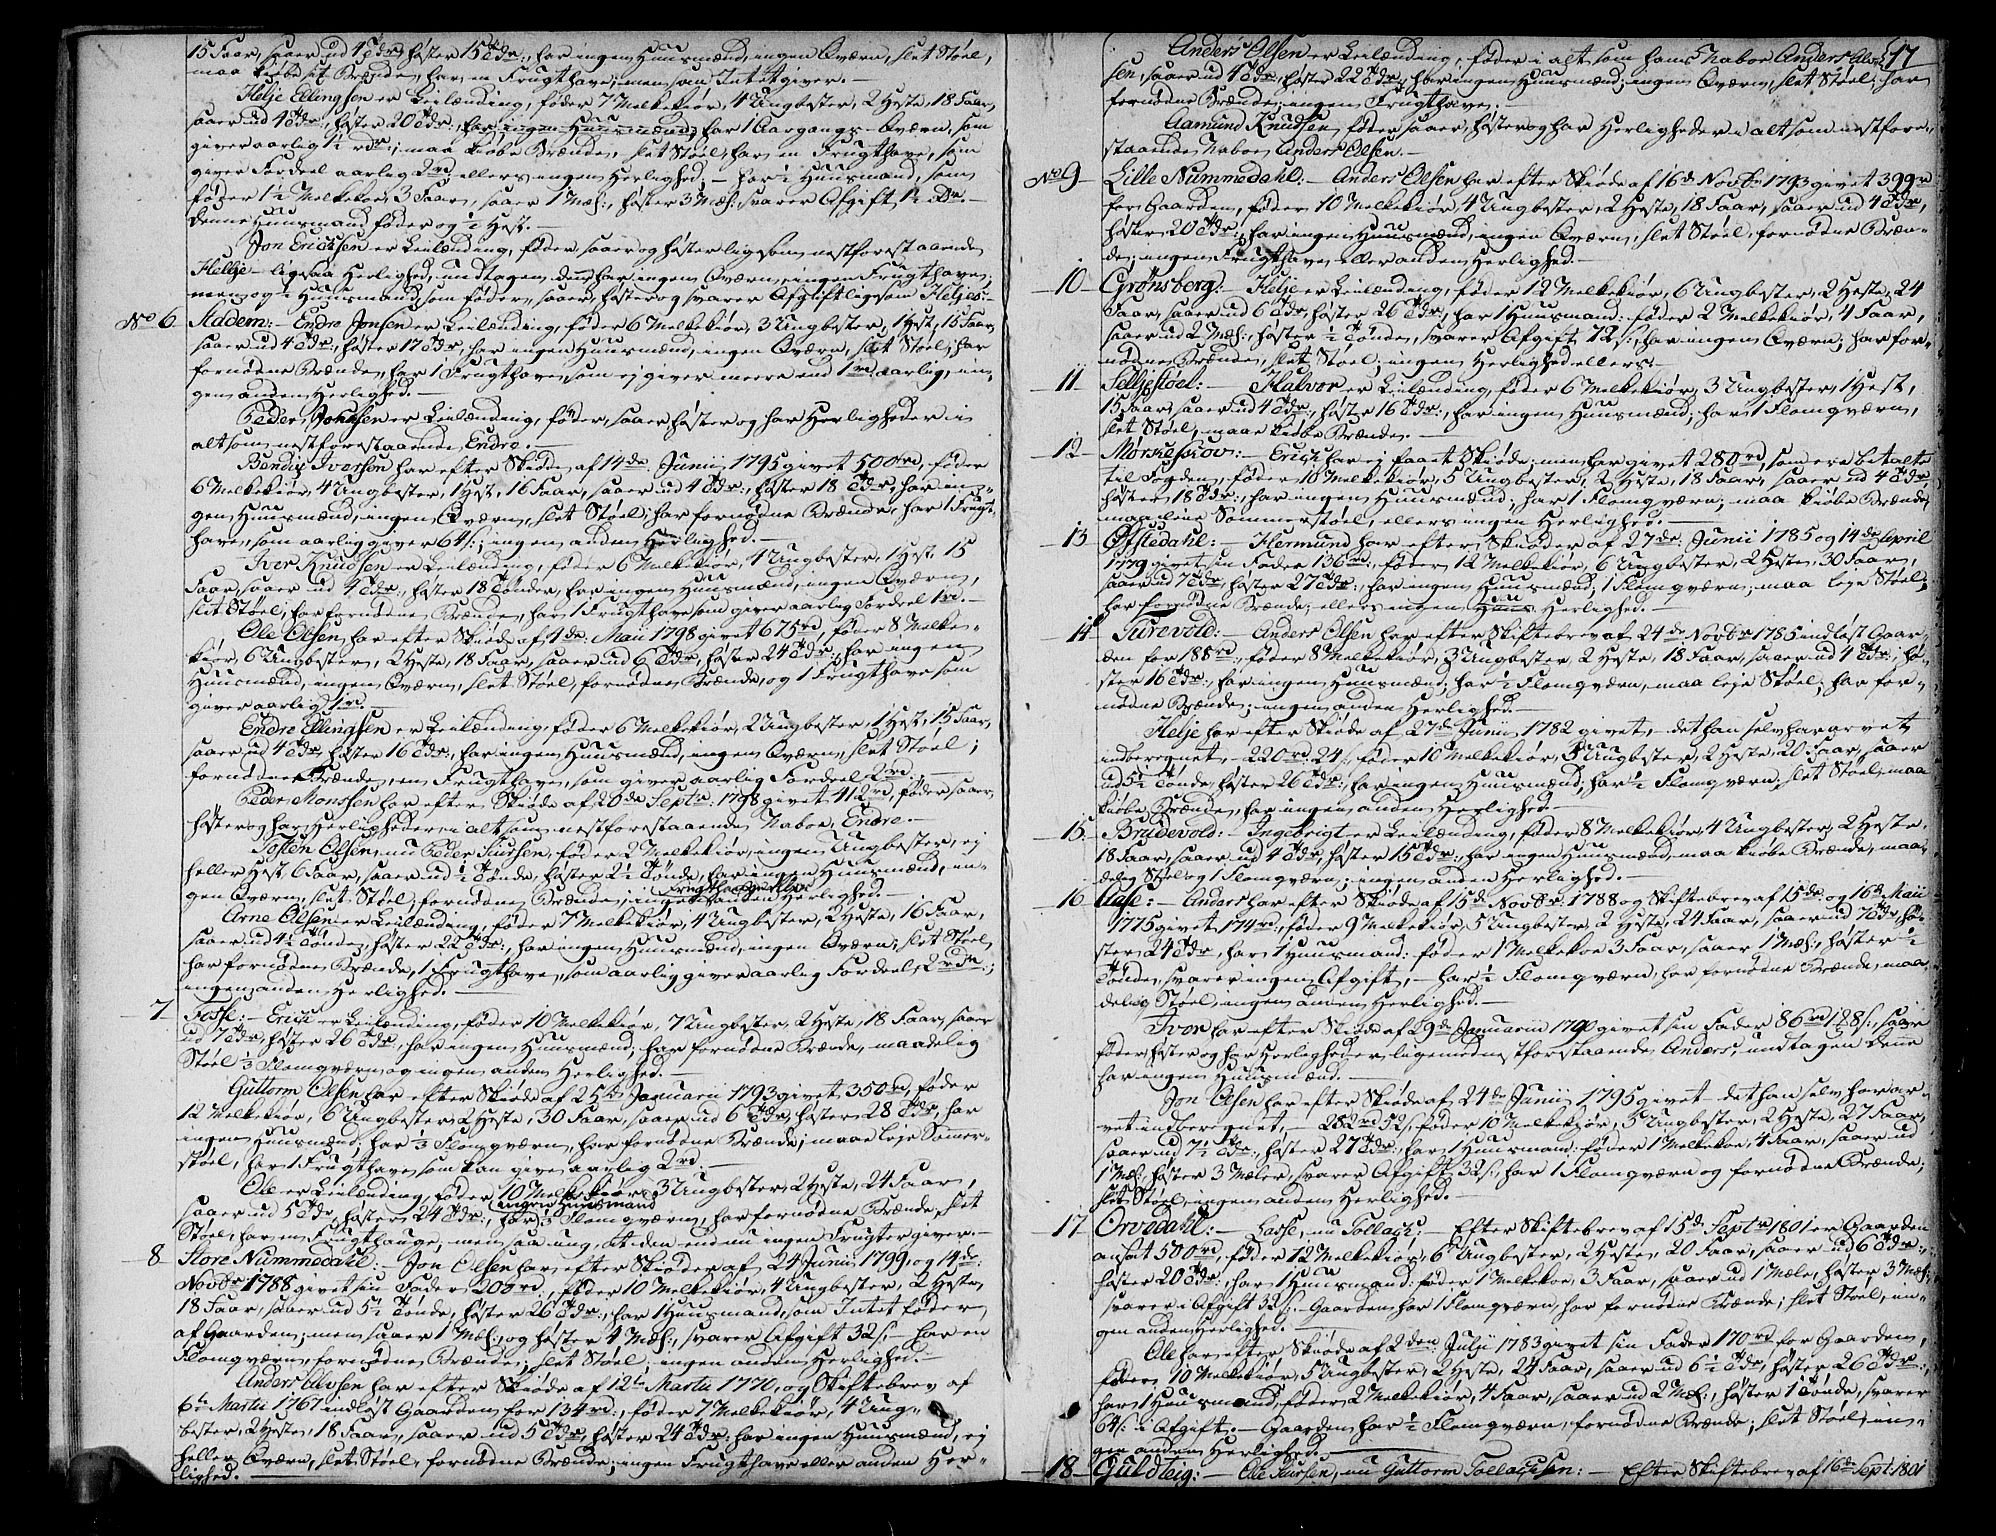 15 Faar, saaer ud 4 Tdr, høster 15 Tdr:, har ingen Huusmænd, ingen Qværn, slet Støel,
maa kiøbe sit Brænde, har en Frugthave; men som Intet giver. –
Helje Ellingsen er Leilænding, føder 7 Melkekiør, 4 Ungbester, 2 Heste, 18 Faar,
saaer ud 4 Tdr:, høster 20 Tdr:, har ingen Huusmænd; har 1 Aargangs-Qværn, som
giver aarlig ½ rdr:; maa kiøbe Brænde, slet Støel, har en Frugthave, som
giver Fordeel aarlig 2 rd; ellers ingen Herlighed; – har ½ Huusmand, som
føder 1½ Melkekoe, 3 Faar, saaer 1 Mæl:, høster 3 Mæl:, svarer Afgift 1½ Dr. –
denne Huusmand føder og ½ Hest. –
Jon Erichsen er Leilænding, føder, saaer og høster ligesom nestforestaaende
Hellje – ligesaa Herlighed, undtagen denne har ingen Qværn, ingen Frugthave;
men og ½ Huusmand, som føder, saaer, høster og svarer Afgift ligesom Heljes: –
No 6 Addem: – Endre Jonsen er Leilænding, føder 6 Melkekiør, 3 Ungbester, 1 Hest, 15 Faar,
saaer ud 4 Tdr:, høster 17 Tdr, har ingen Huusmænd, ingen Qværn, slet Støel, har
fornødne Brænde, har 1 Frugthave, som ej giver meere end 1 rd aarlig, in-
gen anden Herlighed. –
Peder Johnsen er Leilænding, føder, saaer høster og har Herligheder i
alt som nestforestaaende Endre. –
Bendix Iversen har efter Skiøde af 14de Junii 1795 givet 500 rd, føder
6 Melkekiør, 4 Ungbester, 1 Hest, 16 Faar, saaer ud 4 Tdr:, høster 18 Tdr, har in-
gen Huusmænd, ingen Qværn, slet Støel; har fornødne Brænde, har 1 Frugt-
have, som aarlig giver 64 s:; ingen anden Herlighed. –
Iver Knudsen er Leilænding, føder 6 Melkekiør, 4 Ungbester, 1 Hest 15
Faar, saaer ud 4 Tdr:, høster 18 Tønder, har ingen Huusmænd, ingen Qværn,
slet Støel; har fornødne Brænde, har 1 Frugthave som giver aarlig Fordeel 1 rd. –
Ole Olsen har efter Skiøde af 4de: Maii 1798 givet 675 rd, føder 8 Melke-
kiør, 6 Ungbester, 2 Heste, 18 Faar, saaer ud 6 Tdr, høster 24 Tdr; har ingen
Huusmænd, ingen Qværn, slet Støel, fornødne Brænde, og 1 Frugthave som
giver aarlig 1 rd. –
Endre Ellingsen er Leilænding, føder 6 Melkekiør, 2 Ungbester, 1 Hest, 15 Faar,
saaer ud 4 Tdr, høster 16 Tdr:, har ingen Huusmænd, ingen Qværn, slet Støel;
fornødne Brænde, en Frugthave, som giver aarlig Fordeel 2 rd –
Peder Monssen har efter Skiøde af 20de Septr: 1798 givet 412 rd, føder saaer,
høster og har Herligheder i alt som nestforestaaende Naboe, Endre. –
Tosten Olsen, nu Peder Siursen, føder 2 Melkekiør, ingen Ungbester, ej
heller Hest 6 Faar, saaer ud ½ Tønde, høster 2½ Tønde, har ingen Huusmænd, in-
gen Qværn, slet Støel, fornødne Brænde, ingen Frugthave eller anden Herlighed.
Arne Olsen er Leilænding, føder 7 Melkekiør, 4 Ungbester, 2 Heste, 16 Faar,
saaer ud 4½ Tønde, høster 22 Tdr:, har ingen Huusmænd, ingen Qværn, slet Støel,
har fornødne Brænde, 1 Frugthave, som aarlig giver aarlig Fordeel, 2 rdr.;
ingen anden Herlighed. –
7 Fosse: – Erich er Leilænding, føder 10 Melkekiør, 7 Ungbester, 2 Heste, 18 Faar, saaer
ud 7 Tdr, høster 26 Tdr:, har ingen Huusmænd; har fornødne Brænde, maadelig
Støel ⅓ Flomqværn og ingen anden Herlighed. –
Guttorm Olsen har efter Skiøde af 25de Januarii 1793 givet 350 rd, føder
12 Melkekiør, 6 Ungbester, 2 Heste, 30 Faar, saaer ud 6 Tdr:, høster 28 Tdr, har
ingen Huusmænd; har ⅓ Flomqværn, har fornødne Brænde, maae leje Somer-
støel, har 1 Frugthave som kan give aarlig 2 rd. –
Ole er Leilænding, føder 10 Melkekiør, 3 Ungbester, 2 Heste, 24 Faar,
saaer ud 5 Tdr, høster 24 Tdr:, har ingen Huusmænd har ⅓ Flomqværn, har fornødne Brænde, slet
Støel, har en Frugthauge, men saa ung, at den end nu ingen Frugter giver. –
8 Store Nummedahl: – Jon Olsen har efter Skiøder af 24 Junii 1799, og 14de:
Novbr 1788 givet sin Fader 200 rd:, føder 10 Melkekiør, 4 Ungbester, 2 Heste
18 Faar, saaer ud 5½ Tønde, høster 26 Tdr:, har 1 Huusmand, som Intet føder
af Gaarden; men saaer 1 Mæl:, og høster 4 Mæl:, svarer Afgift 32 s: – har en
Flomqværn, fornødne Brænde, slet Støel, ingen anden Herlighed. –
Anders Olsen har efter Skiøde af 12te Martii 1770, og Skiftebrev af
6te Martii 1767 indløst Gaarden for 134 rd:, føder 7 Melkekiør, 4 Ung-
bester, 2 Heste, 18 Faar, saaer ud 5 Tdr, høster 24 Tdr: har ingen Huusmænd, ej
heller Qværn, slet Støel, fornødne Brænde; ingen Frugthave eller anden Her-
lighed. –
17
Anders Olsen er Leilænding, føder i alt som hans Nabor Anders Ol-
sen, saaer ud 4 Tdr, høster 22 Tdr:, har ingen Huusmænd, ingen Qværn, slet Støel, har
fornødne Brænde; ingen Frugthave. –
Aamund Knudsen føder saaer, høster og har Herligheder i alt som nestfore-
staaende Naboe Anders Olsen. –
No 9 Lille Nummedahl: – Anders Olsen har efter Skiøde af 16de Novbr 1793 givet 399 rd
for Gaarden, føder 10 Melkekiør, 4 Ungbester, 2 Heste, 18 Faar, saaer ud 4 Tdr,
høster 20 Tdr:, har ingen Huusmænd, ingen Qværn, slet Støel, fornødne Bræn-
de; ingen Frugthave eller anden Herlighed. –
10 Grønsberg: – Helje er Leilænding, føder 12 Melkekiør, 6 Ungbester, 2 Heste, 24
Faar, saaer ud 6 Tdr, høster 26 Tdr, har 1 Huusmand: føder 2 Melkekiør, 4 Faar,
saaer ud 2 Mæl:, høster ½ Tønde, svarer Afgift 72 s:, har ingen Qværn; har for-
nødne Brænde, slet Støel; ingen Herlighed ellers. –
11 Selljestøel: – Halvor er Leilænding, føder 6 Melkekiør, 3 Ungbester, 1 Hest,
15 Faar, saaer ud 4 Tdr, høster 16 Tdr:, har ingen Huusmænd; har 1 Flomqværn,
slet Støel, maae kiøbe Brænde. –
12 Mørkeskov: – Erich har ej faaet Skiøde; men har givet 280 rd, som ere betalte
til Fogden, føder 10 Melkekiør, 5 Ungbester, 2 Heste, 18 Faar, saaer ud 4 Tdr,
høster 18 Tdr:, har ingen Huusmænd; har 1 Flomqværn; maa kiøbe Brænde,
maa leie Sommerstøel, ellers ingen Herlighed. –
13 Øfstedahl: – Hermund har efter Skiøder af 27de: Junii 1785 og 14de April
1779 givet sin Fader 136 rd:, føder 12 Melkekiør, 6 Ungbester, 2 Heste, 30 Faar,
saaer ud 7 Tdr, høster 27 Tdr: har ingen Huusmænd, 1 Flomqværn, maa leje Støel,
har fornødne Brænde; ellers ingen Herlighed. –
14 Turevold: – Anders Olsen har efter Skiftebrev af 24de Novbr 1785 indløst Gaar-
den for 188 rd:, føder 8 Melkekiør, 3 Ungbester, 2 Heste, 18 Faar, saaer ud 4 Tdr:, hø-
ster 16 Tdr:, har ingen Huusmænd; har ½ Flomqværn, maa leje Støel, har for-
nødne Brænde; ingen anden Herlighed. –
Helje har efter Skiøde af 27de Junii 1782 givet, – det han selv har arvet
indberegnet, – 220 rd. 24 s: føder 10 Melkekiør, 5 Ungbester, 2 Heste, 20 Faar, saaer
ud 5½ Tønde, høster 26 Tdr:, har ingen Huusmænd; har ½ Flomqværn; slet Støel, maa
kiøbe Brænde, har ingen anden Herlighed. –
15 Brudevold: – Ingebrigt er Leilænding, føder 8 Melkekiør, 4 Ungbester, 2 Heste,
18 Faar, saaer ud 4 Tdr, høster 15 Tdr:, har ingen Huusmænd, maa kiøbe Brænde, maa-
delig Støel og 1 Flomqværn; ingen anden Herlighed. –
16 Aase: – Anders har efter Skiøde af 15de Novbr: 1788 og Skiftebrev af 15de og 16de Maii
1775 givet 174 rd:, føder 9 Melkekiør, 5 Ungbester, 2 Heste, 24 Faar, saaer ud 7 Tdr, hø-
ster 24 Tdr, har 1 Huusmand: føder 1 Melkekoe 3 Faar, saaer 1 Mæl:, høster ½
Tønde, svarer ingen Afgift, – har ½ Flomqværn, har fornødne Brænde, maa-
delig Støel, ingen anden Herlighed. –
Iver har efter Skiøde af 29de Januarii 1790 givet sin Fader 86 rd 128 s:, saaer
føder, høster og har Herligheder, lige med nestforestaaende Anders, undtagen denne
har ingen Huusmænd. –
Jon Olsen har efter Skiøde af 24de Junii 1795 givet – det han selv har ar-
vet indberegnet, – 282 rd 52 s, føder 10 Melkekiør, 5 Ungbester, 2 Heste, 27 Faar,
saaer ud 7½ Tdr, høster 27 Tdr:, har 1 Huusmand: føder 1 Melkekoe, 4 Faar, saaer ud
1 Mæl:, høster 3 Mæler, svarer Afgift 32 s: har 1 Flomqværn og fornødne Brænde;
slet Støel, ingen anden Herlighed. –
17 Orvedahl: – Lasse, nu Tollach: – Efter Skiftebrev af 15de Septr 1801 er Gaarden
ansat 500 rd, føder 12 Melkekiør, 6 Ungbester, 2 Heste, 20 Faar, saaer ud 6 Tdr:,
høster 20 Tdr:, har 1 Huusmand: føder 1 Melkekoe, 3 Faar, saaer ud 1 Mæle, høster 3 Mæl:
svarer i Afgift 32 s. – Gaarden har 1 Flomqværn, har fornødne Brænde; slet Støel, in-
gen anden Herlighed. –
Ole har efter Skiøde af 2den: Julii 1783 givet sin Fader 170 rd for Gaarden,
føder 10 Melkekiør, 5 Ungbester, 2 Heste, 24 Faar, saaer ud 6½ Tdr, høster 26 Tdr:,
har 1 Huusmand, føder 2 Melkekiør, 4 Faar, saaer ud 2 Mæl:, høster 1 Tønde, svarer
64 s: i Afgift. – Gaarden har ½ Flomqværn, fornødne Brænde; slet Støel, in-
gen anden Herlighed. –
18 Guldteig: – Ole Siursen, nu Guttorm Tollachsen: – Efter Skiftebrev af 16de Sept: 1801